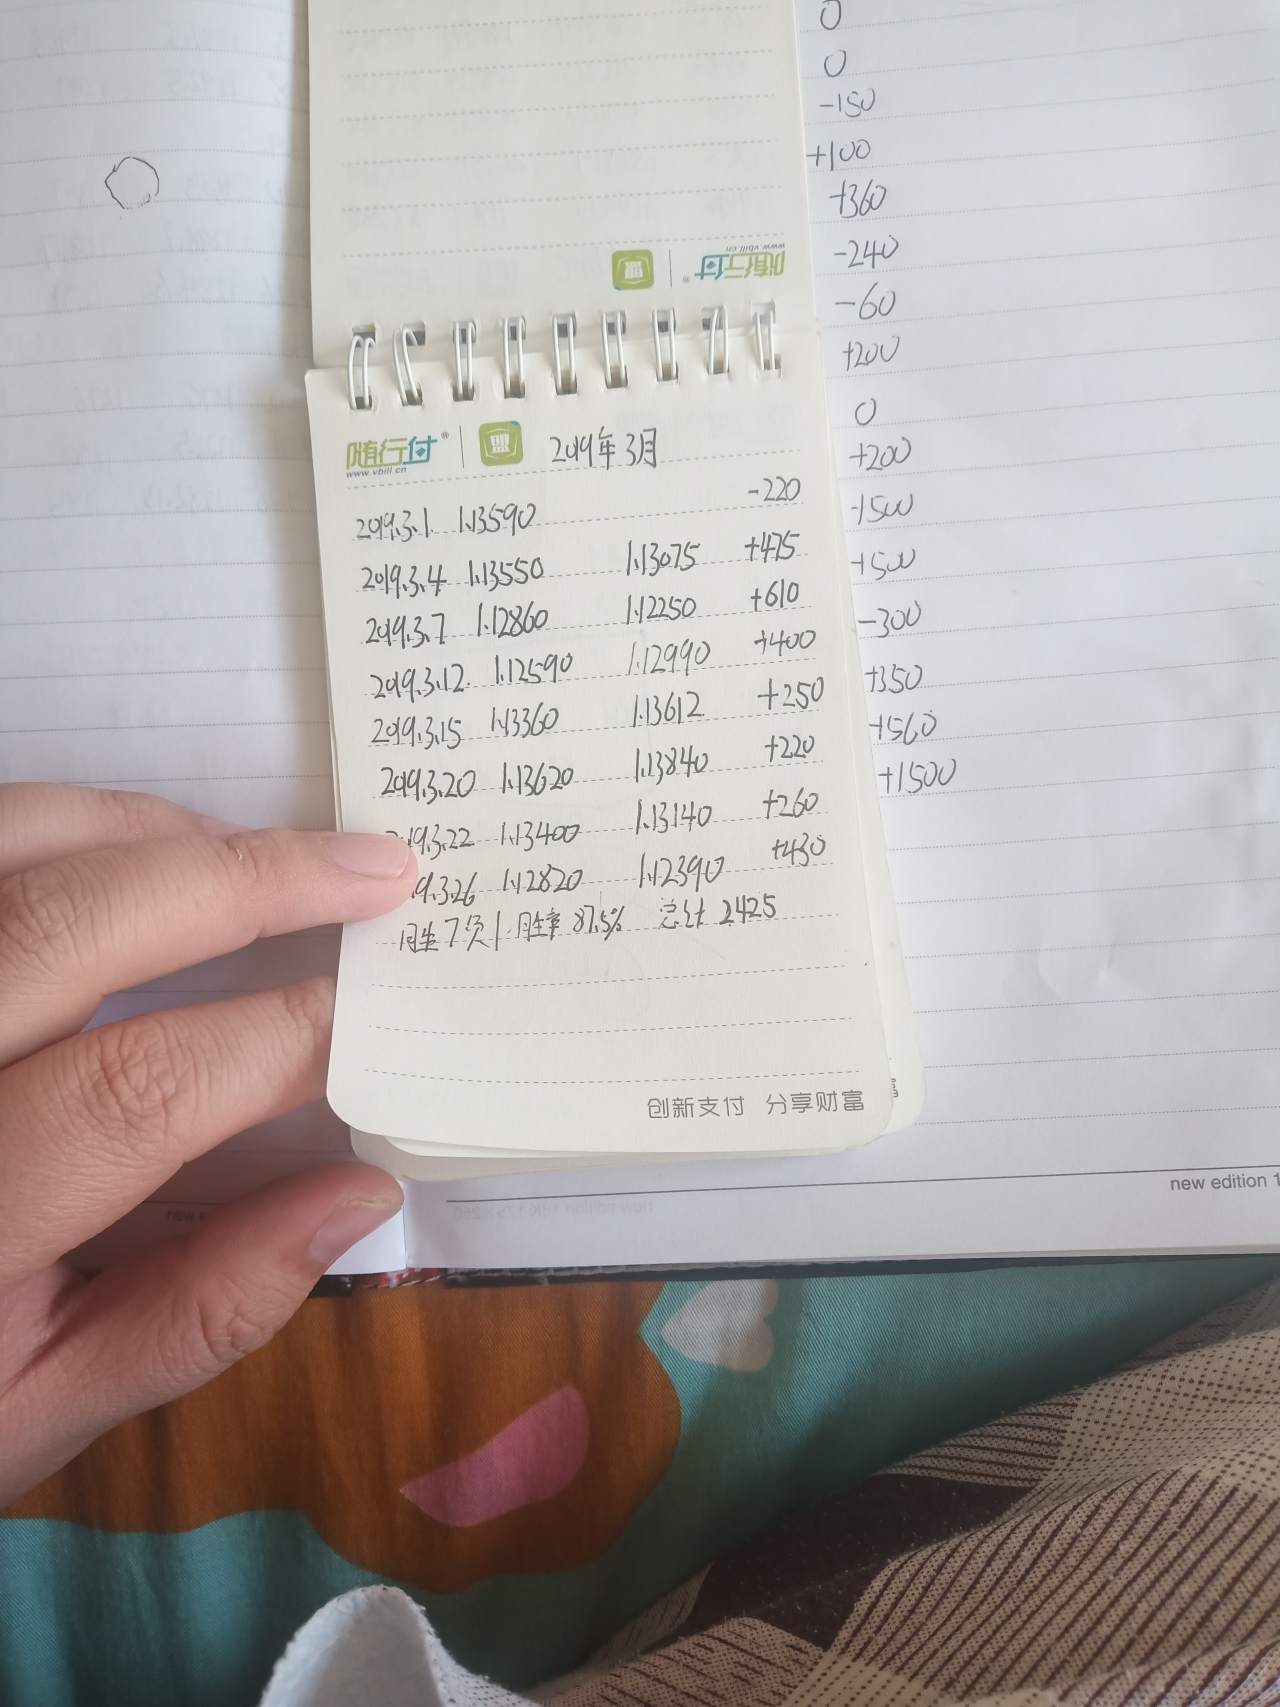 随行付® 盟
www.vbill.cn
随行付® 盟 2019年3月
www.vbill.cn
2019.3.1 1.13590 -220
2019.3.4 1.13550 1.13075 +475
2019.3.7 1.12860 1.12250 +610
2019.3.12. 1.12590 1.12990 +400
2019.3.15 1.13360 1.13612 +250
2019.3.20 1.13620 1.13840 +220
19.3.22 1.13400 1.13140 +260
9.3.26 1.12820 1.12390 +430
胜7负1.胜率87.5% 总计2425
创新支付 分享财富
0
0
-150
+100
+360
-240
-60
+200
0
+200
+500
-300
+350
+560
+1500
new edition 1